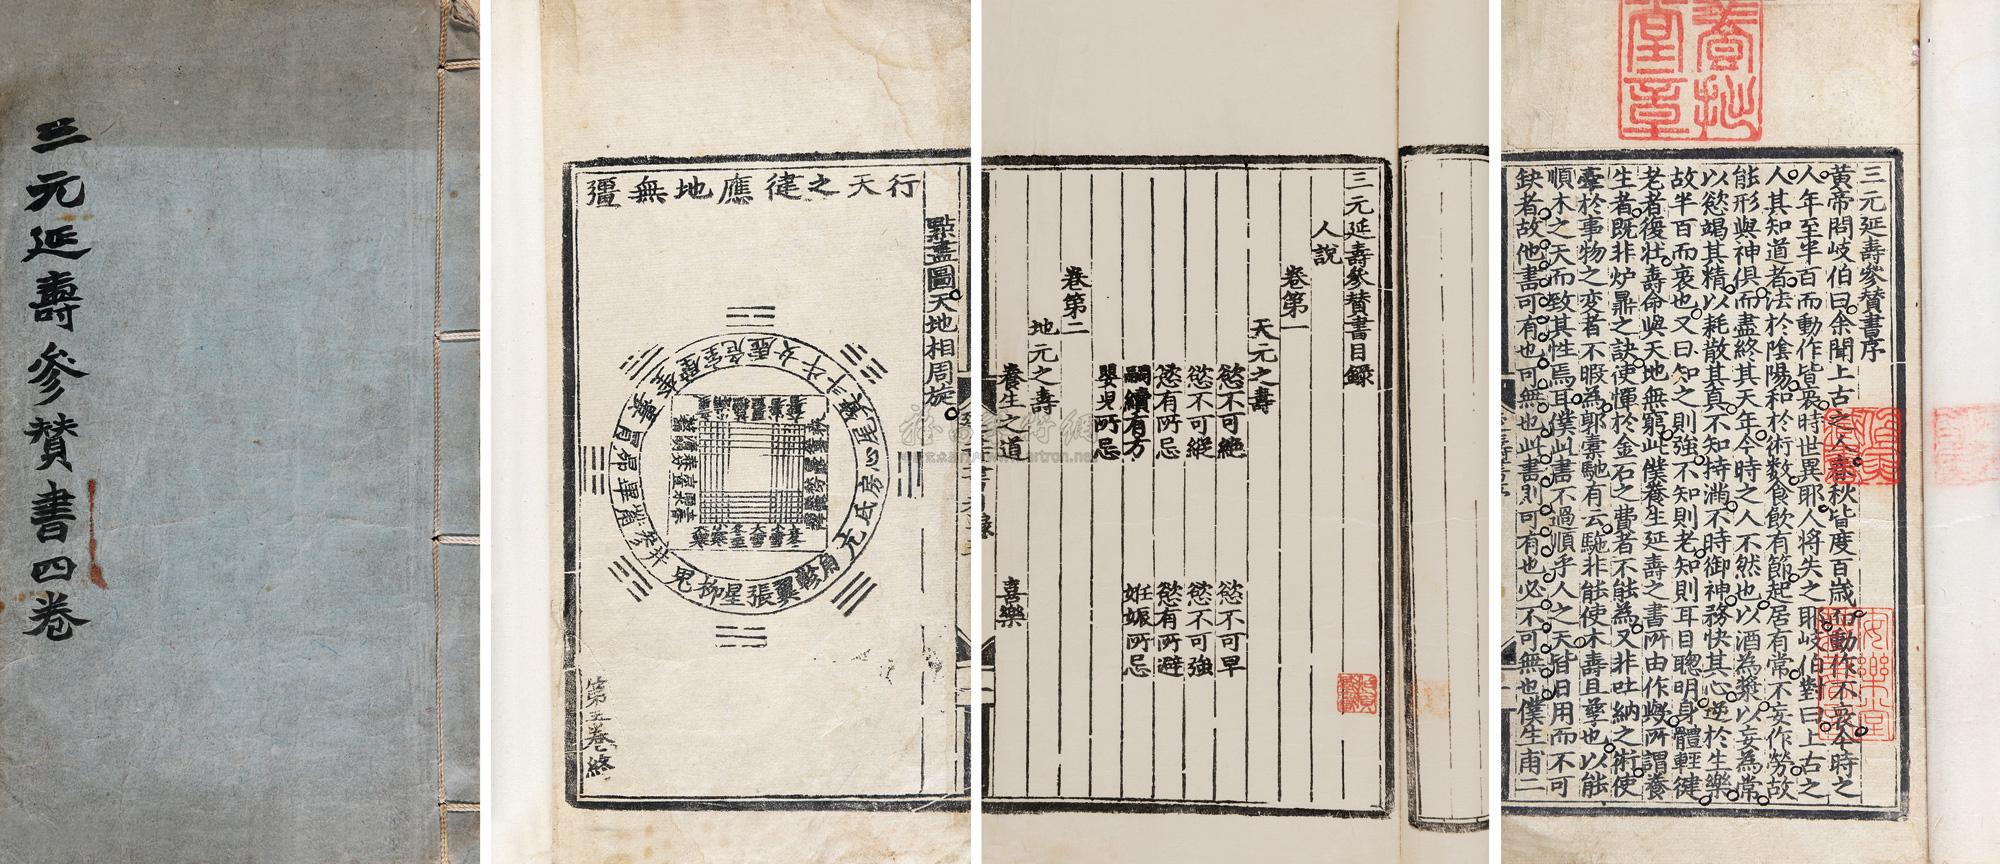 三元延壽參贊書四卷
行天之徤應地無彊
點畫圖天地相周旋
角亢氐房心尾箕斗牛女虛危室壁奎婁胃昴畢觜參井鬼柳星張翼軫
第五卷終
三元延壽參贊書目錄
人說
卷第一
天元之壽
慾不可絕 慾不可早
慾不可縱 慾不可強
慾有所忌 慾有所避
嗣續有方 妊娠所忌
嬰兒所忌
卷第二
地元之壽
養生之道 喜樂
養拙堂章
三元延壽參贊書序
黃帝問岐伯曰余聞上古之人春秋皆度百歲而動作不衰今時之
人年至半百而動作皆衰時世異耶人將失之耶岐伯對曰上古之
人其知道者法於陰陽和於術數食飲有節起居有常不妄作勞故
能形與神俱而盡終其天年今時之人不然也以酒為漿以妄為常
以慾竭其精以耗散其真不知持滿不時御神務快其心逆於生樂
故半百而衰也又曰知之則強不知則老知則耳目聰明身體輕健
老者復壯壽命與天地無窮此僕養生延壽之書所由作歟所謂養
生者既非炉鼎之訣使憚於金石之費者不能為又非吐納之術使
牽於事物之变者不暇為郭橐馳有云駞非能使木壽且孳也以能
順木之天而致其性焉耳僕此書不過順乎人之天皆日用而不可
缺者故他書可有也可無也此書則可有也必不可無也僕生甫二
安樂堂